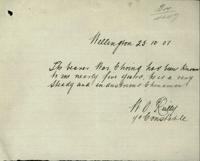 Wellington 23.10.01
The bearer Wor Chong has been known
to me nearly five years, he is a very
Steady and industrious Chinaman
W. O. Reilly
Constable